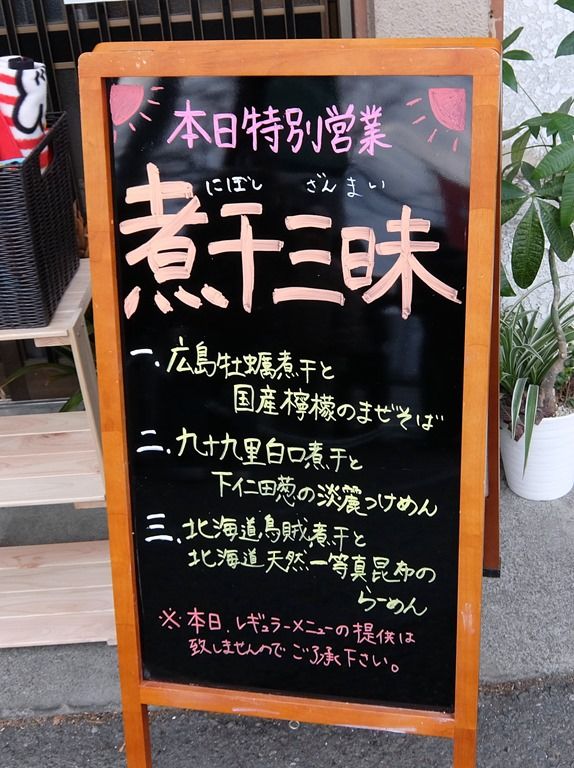 本日特別営業
にぼし ざんまい
煮干三昧
一. 広島牡蠣煮干と
国産檸檬のまぜそば
二. 九十九里白口煮干と
下仁田葱の淡麗つけめん
三. 北海道烏賊煮干と
北海道天然一等真昆布の
らーめん
※本日、レギュラーメニューの提供は
致しませんのでご了承下さい。